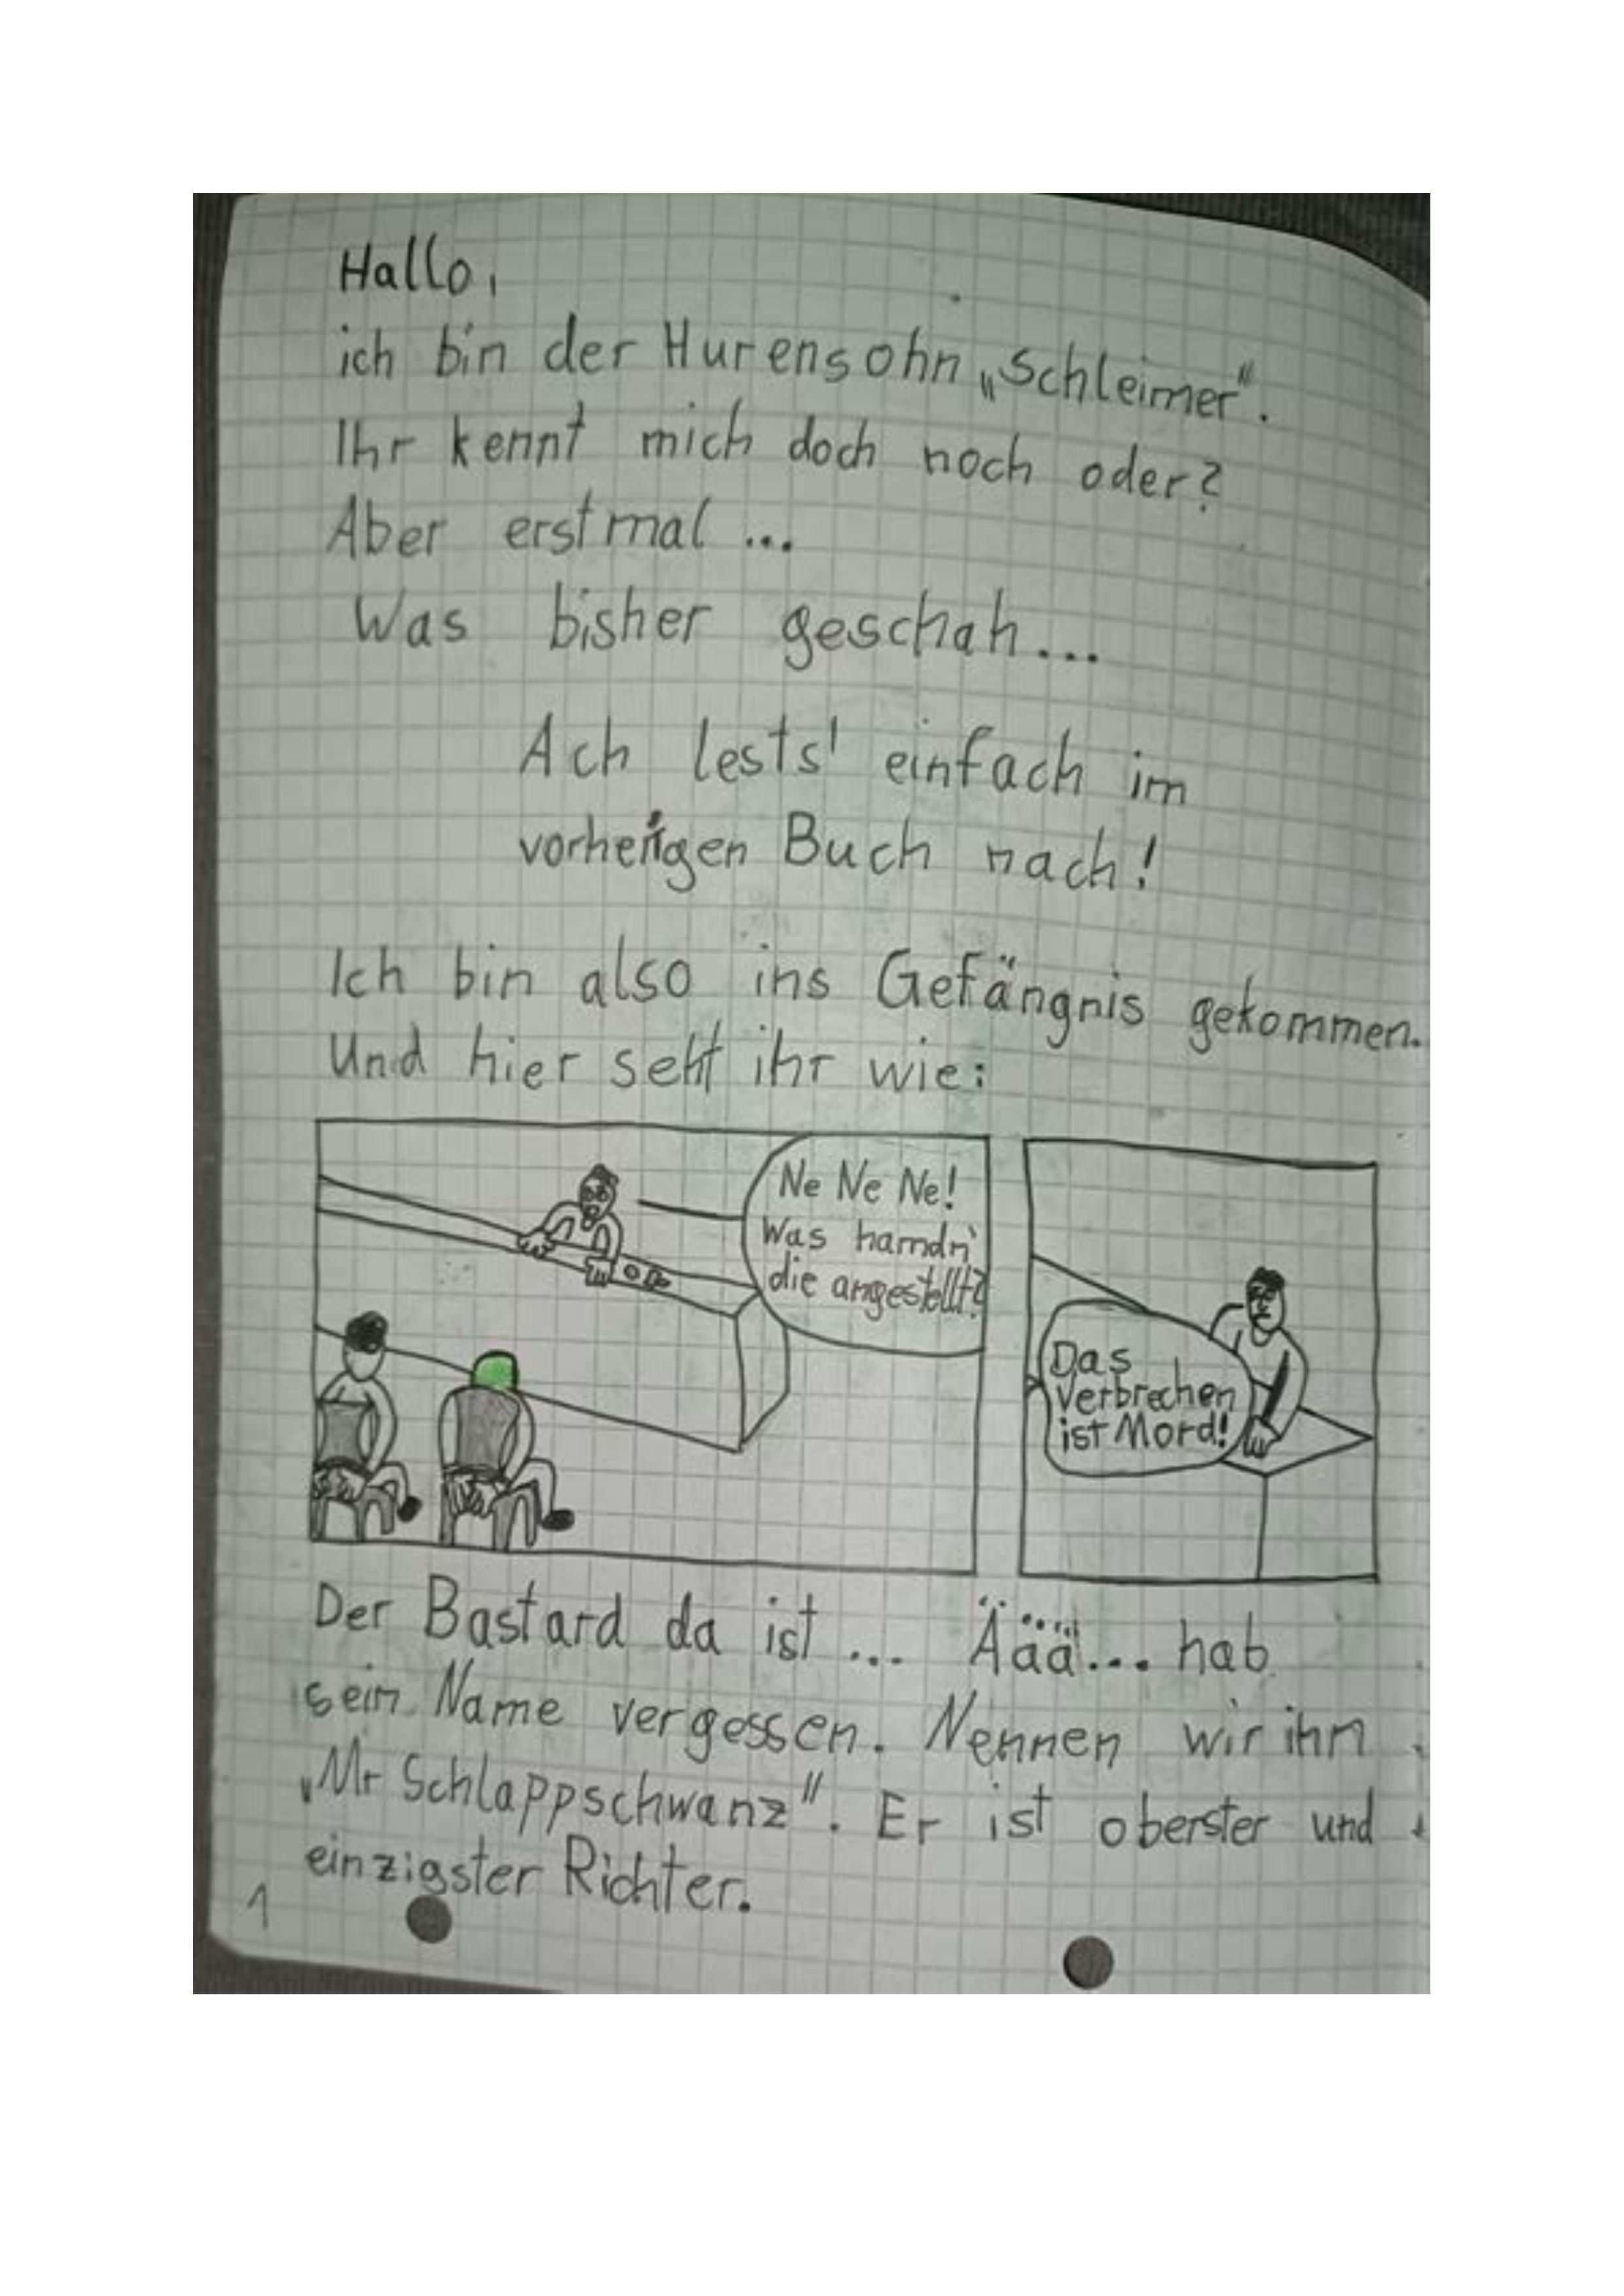 Hallo,
ich bin der Hurensohn „Schleimer".
Ihr kennt mich doch noch oder?
Aber erstmal ...
Was bisher geschah...
Ach lests' einfach im
vorherigen Buch nach!
Ich bin also ins Gefängnis gekommen.
Und hier seht ihr wie:
Ne Ne Ne!
Was hamdn'
die angestellt?
Das
Verbrechen
ist Mord!
Der Bastard da ist ... Äää... hab
sein Name vergessen. Nennen wir ihn
„Mr Schlappschwanz". Er ist oberster und
einzigster Richter.
1